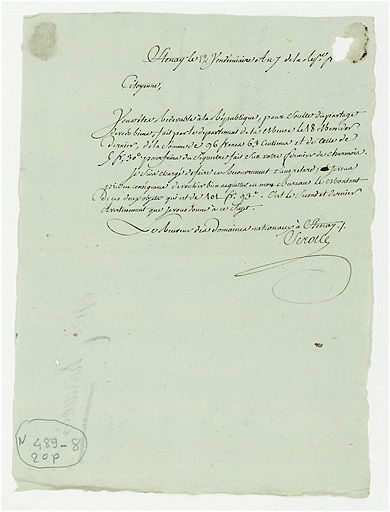 Stenay le 12 Vendémiaire An 7 de la Rép.
Citoyenne,
Vous êtes redevable à la République, pour Soulte du partage
fait par le département de la Meuse le 18
dernier, de la Somme de 96 francs 63 Centimes et de celle de
5 fr. 30 c. pour frais du Sequestre fait Sur votre fermier de
Je Suis chargé de faire ce recouvrement Sans retard, Je vous
prie en conséquence de vouloir bien acquitter en mon Bureau le Montant
de ces deux objets qui est de 101 fr. 93 c. C'est le Second et dernier
Avertissement que Je vous donne à ce Sujet.
Le Receveur des domaines nationaux à Stenay
N 489-8
20 p